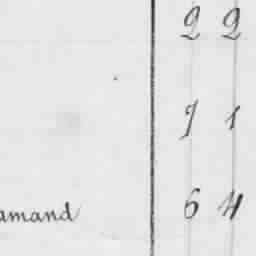 2 2
1 1
amand 6 4